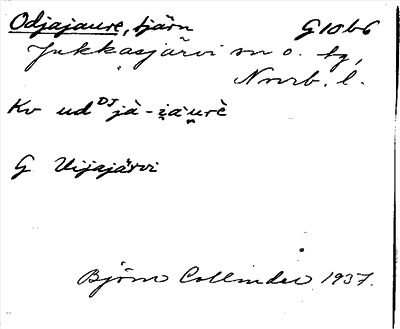 Odjajaure, tjärn G10b6
Jukkasjärvi sn o. tg,
Norrb. l.
Kv ud DJ jà-jàurè
G Uijajärvi
Björn Collinder 1937.